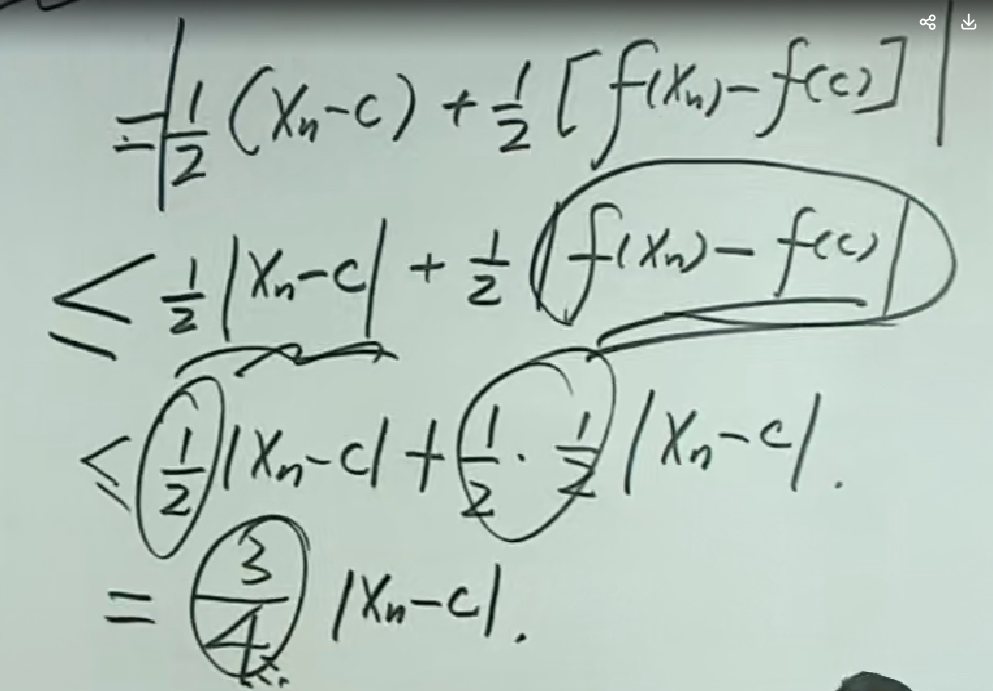 =|1/2 (Xn-c) + 1/2 [f(Xn)-f(c)]|
≤ 1/2 |Xn-c| + 1/2 |f(Xn)-f(c)|
≤ 1/2 |Xn-c| + 1/2 · 1/2 |Xn-c|.
= 3/4 |Xn-c|.